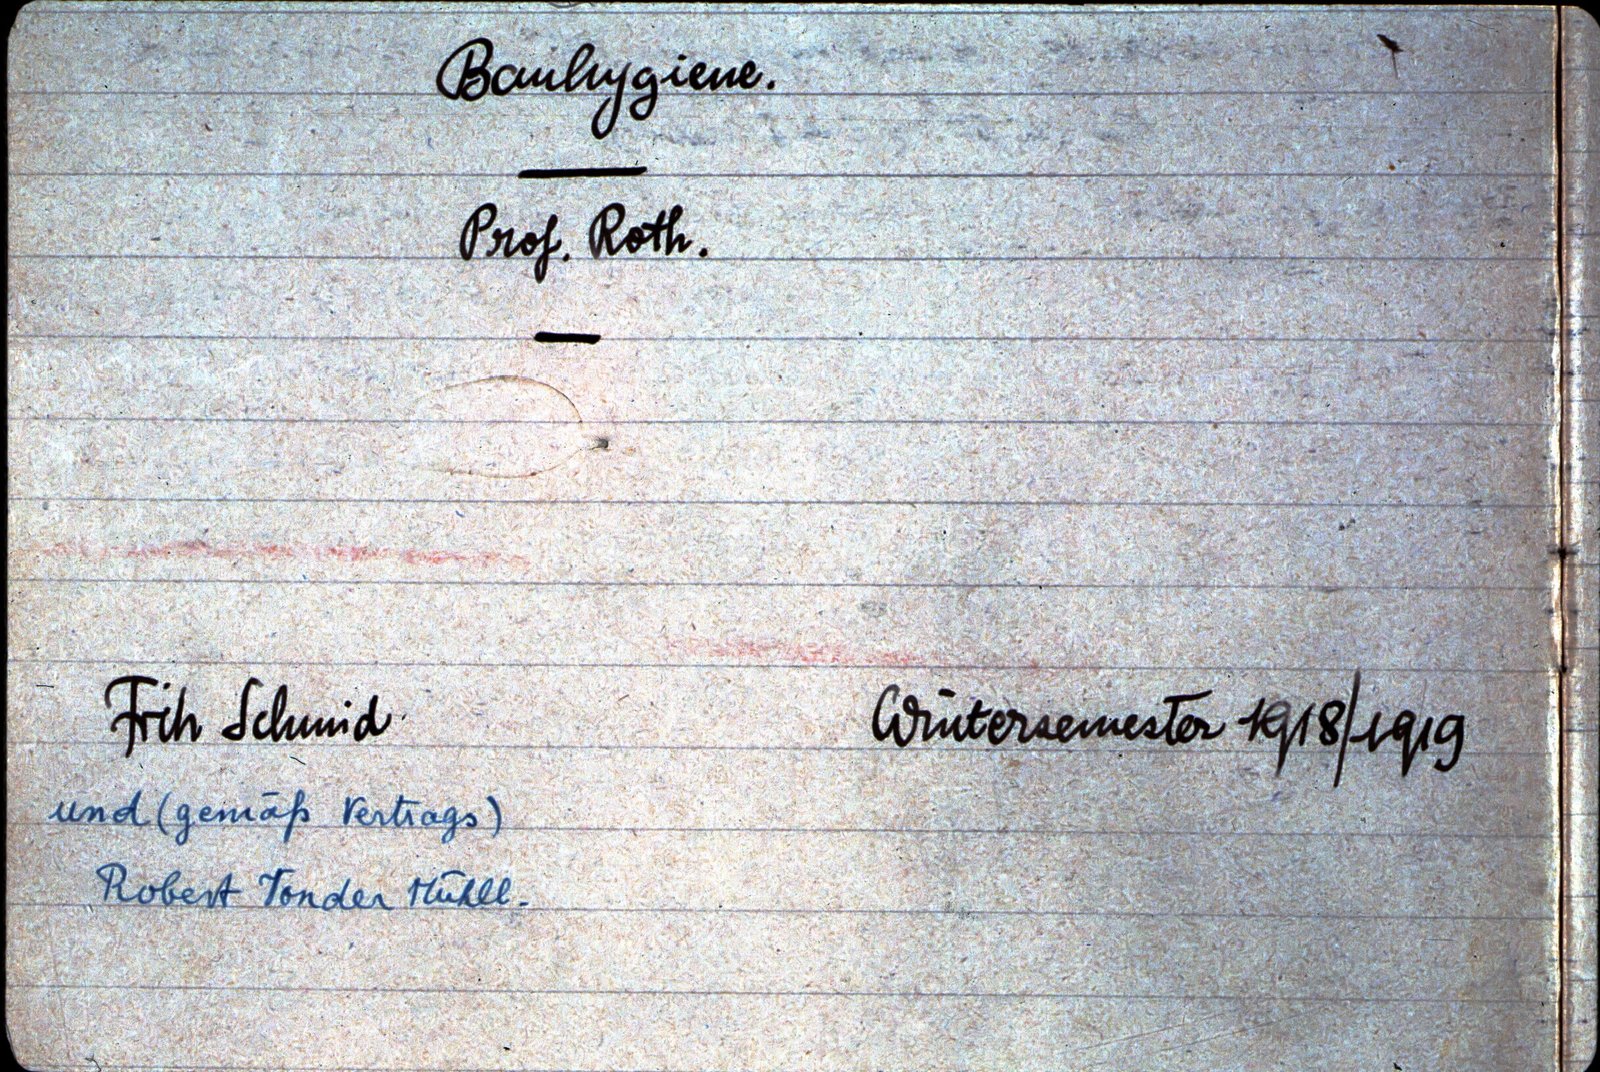 Bauhygiene.
Prof. Roth.
Fritz Schmid
Wintersemester 1918/1919
und (gemäß Vertrags)
Robert Vonder Mühll.